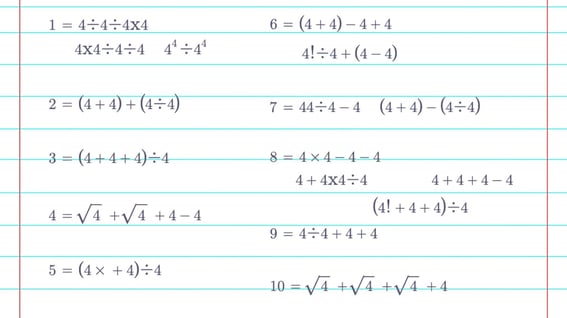 1 = 4÷4÷4x4
4x4÷4÷4 4⁴÷4⁴
2 = (4+4)+(4÷4)
3 = (4+4+4)÷4
4 = √4 +√4 +4−4
5 = (4× +4)÷4
6 = (4+4)−4+4
4!÷4+(4−4)
7 = 44÷4−4 (4+4)−(4÷4)
8 = 4×4−4−4
4+4x4÷4 4+4+4−4
(4!+4+4)÷4
9 = 4÷4+4+4
10 = √4 +√4 +√4 +4